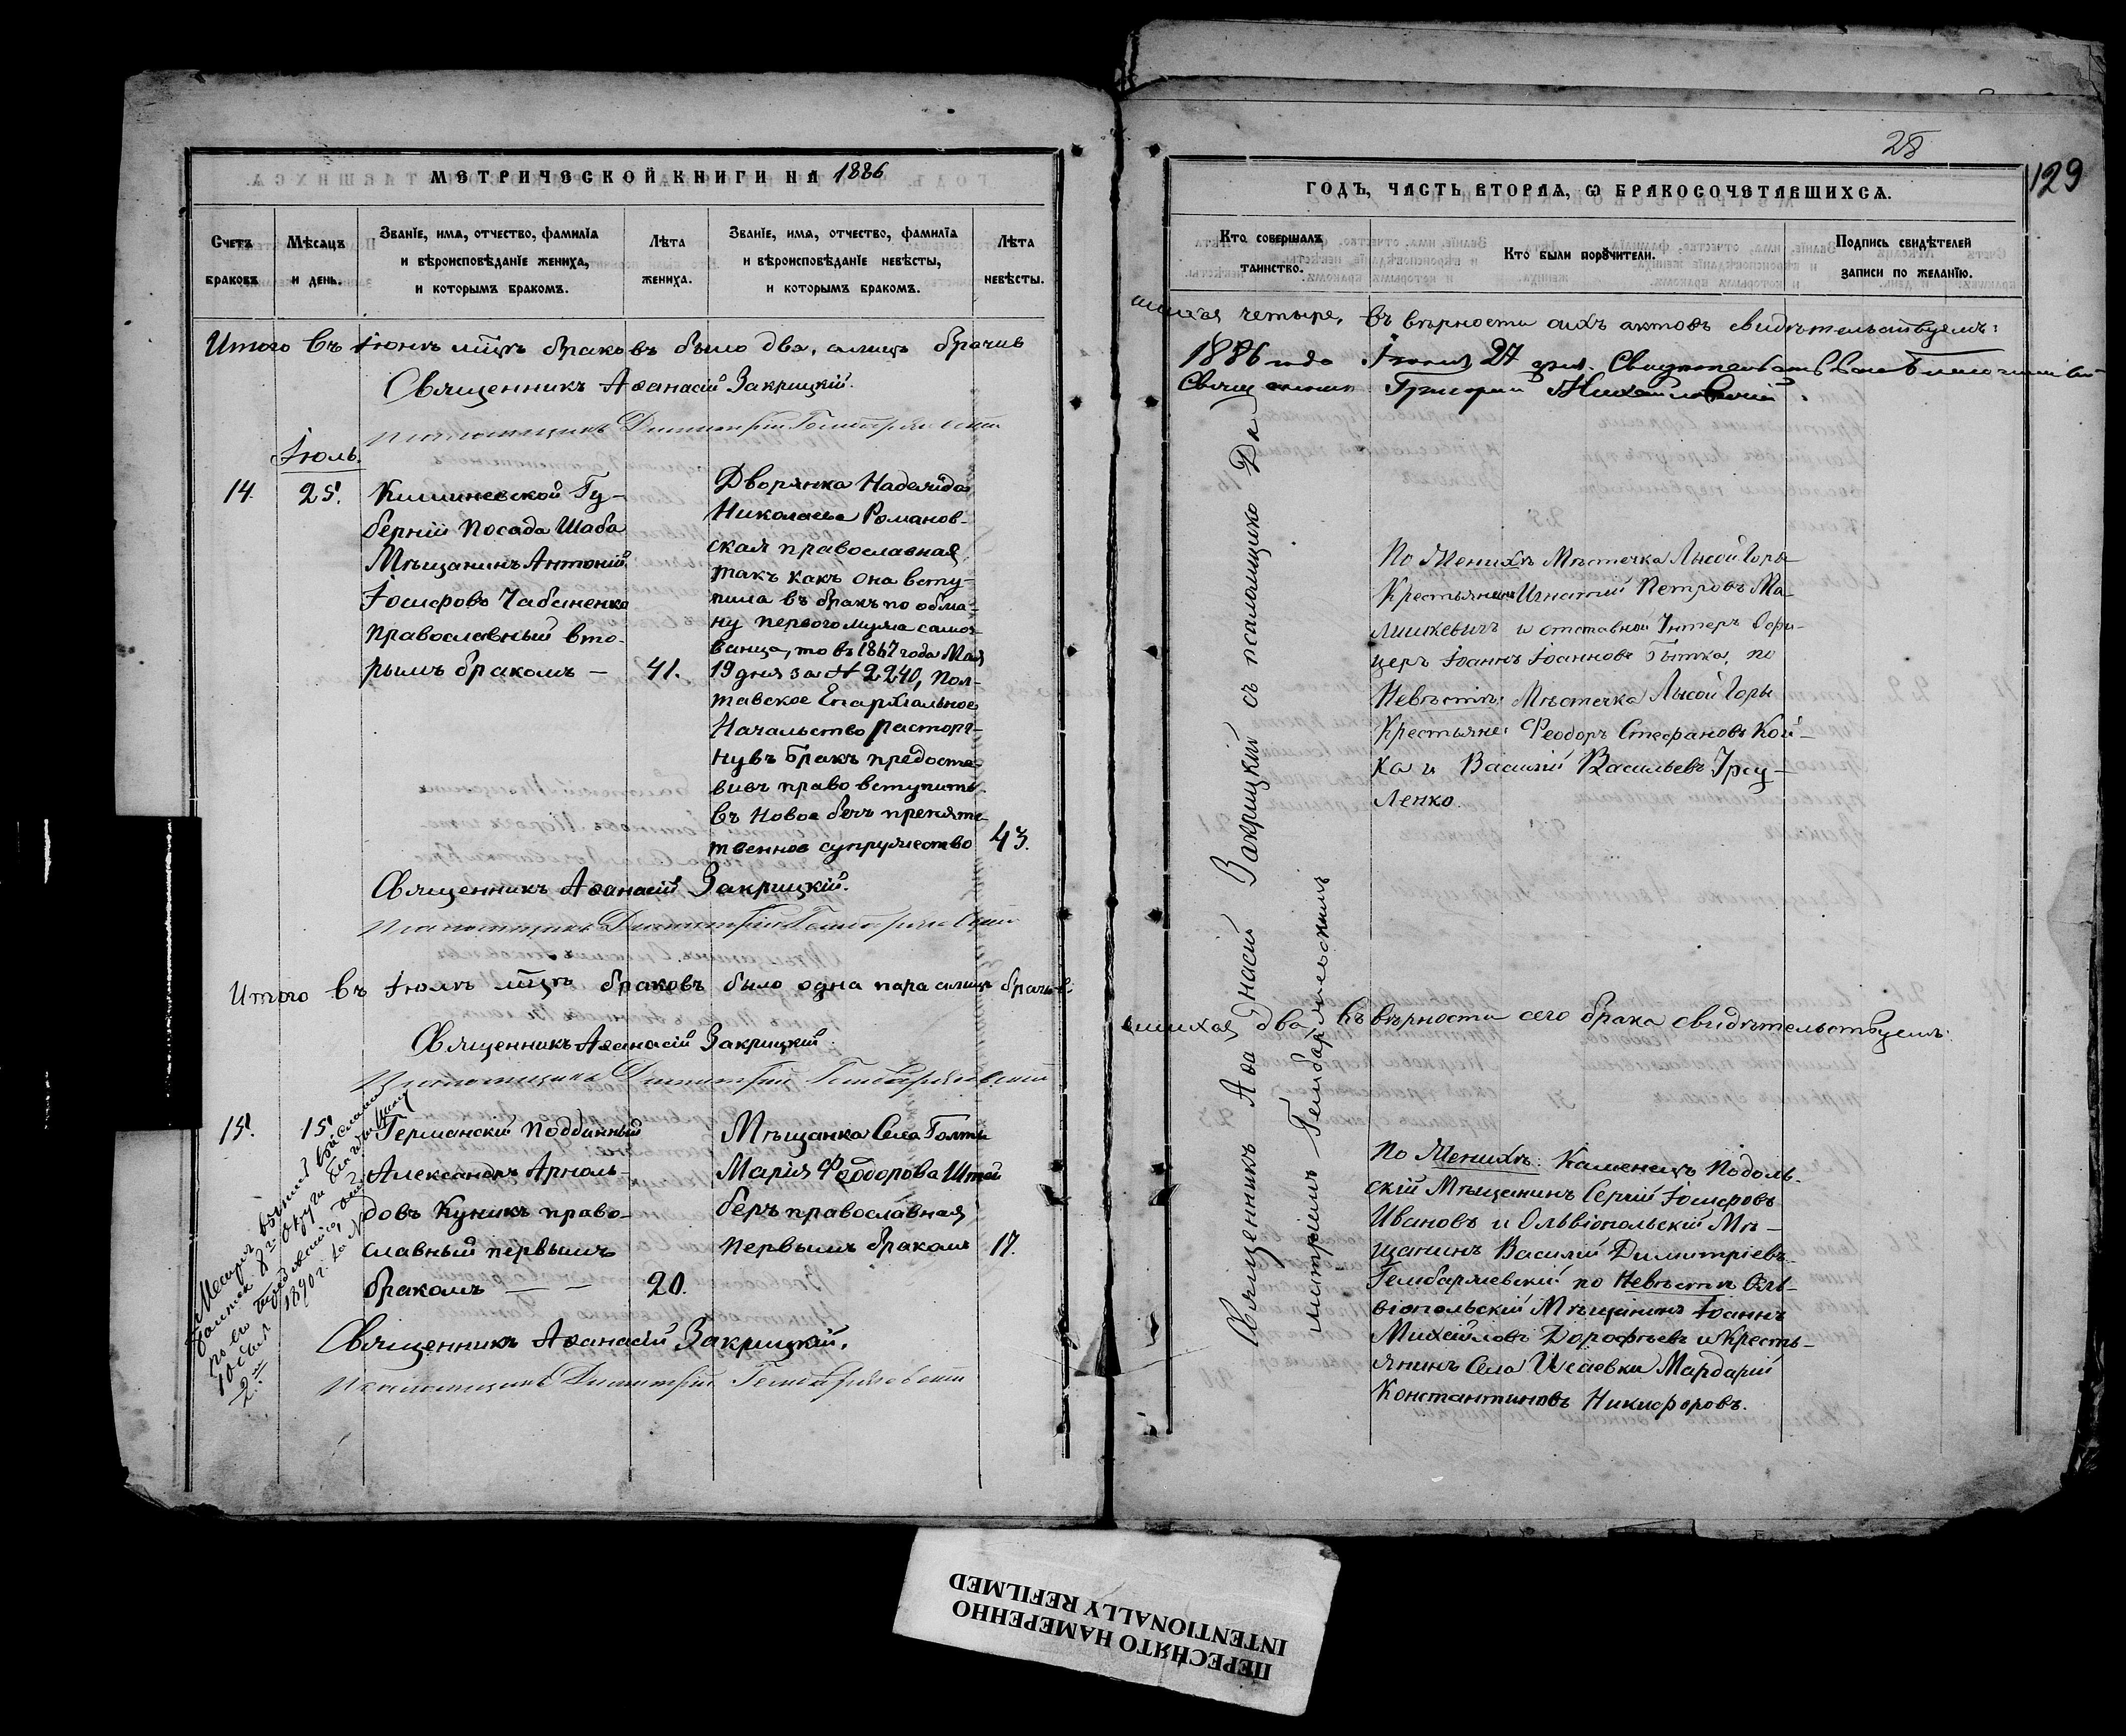 МЕТРИЧЕСКОЙ КНИГИ НА 1886
Счетъ браковъ.
Мѣсяцъ и день.
Званіе, имя, отчество, фамилія
и вѣроисповѣданіе жениха,
и которымъ бракомъ.
Лѣта жениха.
Званіе, имя, отчество, фамилія
и вѣроисповѣданіе невѣсты,
и которымъ бракомъ.
Лѣта невѣсты.
Итого въ Іюнѣ мцѣ браковъ было два, а лицъ брачив
Священникъ Аѳанасій Закрицкій.
Псаломщикъ Димитрій
Іюль.
14.
25.
Кишиневской Гу-
берніи Посада Шаба
Мѣщанинъ Антоній
Іосифовъ Чабаненко
православный вто-
рымъ бракомъ —
41.
Дворянка Надежда
Николаева Романов-
ская православная,
такъ какъ она всту-
пила въ бракъ по обма-
ну первого мужа самоз-
ванца, то въ 1867 года Мая
19 дня за № 2240, Пол-
тавское Епархіальное
Начальство расторг-
нувъ бракъ предоста-
вивъ право вступить
въ новое безъ препятс-
твенное супружество
43.
Священникъ Аѳанасій Закрицкій.
Псаломщикъ Димитрій
Итого въ Іюлѣ мцѣ браковъ было одна пара а лицъ брачив-
Священникъ Аѳанасій Закрицкій.
Псаломщикъ Димитрій
15.
15.
Германскій подданный
Александръ Арноль-
довъ Куникъ право-
славный первымъ
бракомъ — —
20.
Мѣщанка Села Голты
Марія Ѳеодорова Штей
беръ православная
первымъ бракомъ
17.
1890 г. за №
Священникъ Аѳанасій Закрицкій.
Псаломщикъ Димитрій
28
129
ГОДЪ, ЧАСТЬ ВТОРАЯ, Ѡ БРАКОСОЧЕТАВШИХСЯ.
Кто совершалъ
таинство.
Кто были поручители.
Подпись свидѣтелей
записи по желанію.
шихся четыре, въ вѣрности сихъ актовъ свидѣтельствуемъ:
1886 года Іюля 27 дня.
Священникъ Григорій Михайловскій.
Священникъ Аѳанасій Закрицкій съ псаломщикомъ Ди
митріемъ
По Женихѣ Мѣстечка Лысой Горы
Крестьянинъ Игнатій Петровъ Ма-
лишкевичъ и отставной Унтеръ Офи-
церъ Іоаннъ Іоанновъ по
Невѣстѣ: Мѣстечка Лысой Горы
Крестьяне: Ѳеодоръ Стефановъ Кой-
ка и Василій Васильевъ Урсу-
ленко.
шихся два, въ вѣрности сего брака свидѣтельствуемъ:
По Женихѣ: Каменецъ Подоль-
скій Мѣщанинъ Сергій Іосифовъ
Ивановъ и Ольвіопольскій Мѣ-
щанинъ Василій Димитріевъ
по Невѣстѣ Оль-
віопольскій Мѣщанинъ Іоаннъ
Михайловъ Дорофѣевъ и Кресть-
янинъ Села Исаевки Мардарій
Константиновъ Никифоровъ.
ПЕРЕСНЯТО НАМЕРЕННО
INTENTIONALLY REFILMED